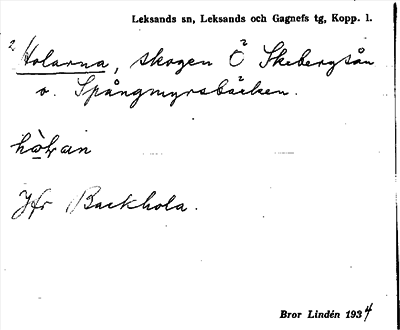 Leksands sn, Leksands och Gagnefs tg, Kopp. l.
2 Holarna, skogen Ö Skebergsån
o. Spångmyrsbäcken.
Jfr Backhola.
Bror Lindén 1934